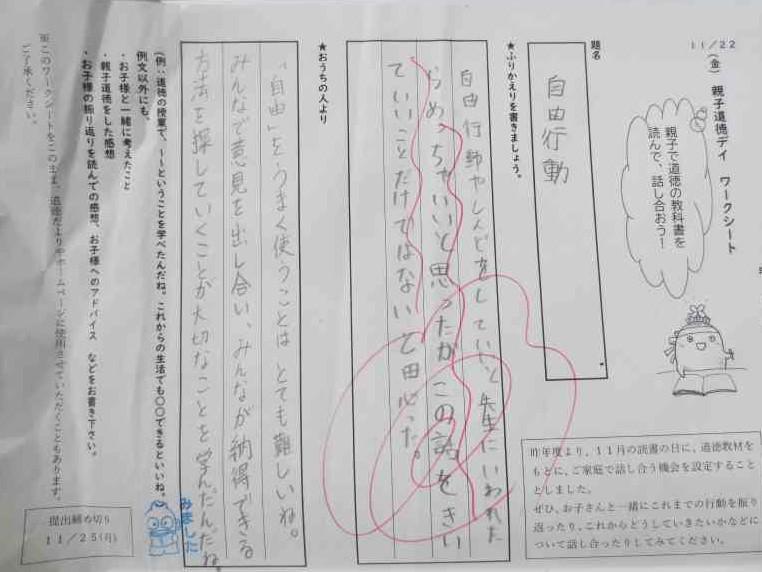 11/22
(金) 親子道徳デイ ワークシート
親子で道徳の教科書を
読んで、話し合おう！
昨年度より、11月の読書の日に、道徳教材を
もとに、ご家庭で話し合う機会を設定すること
としました。
ぜひ、お子さんと一緒にこれまでの行動を振り
返ったり、これからどうしていきたいかなどに
ついて話し合ったりしてみてください。
題名
自由行動
★ふりかえりを書きましょう。
自由行動やしんどをしていいと先生にいわれた
らめっちゃいいと思ったがこの話をきい
ていいことだけではないと思った。
★おうちの人より
「自由」をうまく使うことはとても難しいね。
みんなで意見を出し合い、みんなが納得できる
方法を探していくことが大切なことを学んだんだね。
みました
(例：道徳の授業で、～～ということを学べたんだね。これからの生活でも〇〇できるといいね。
例文以外にも、
・お子様と一緒に考えたこと
・親子道徳をした感想
・お子様の振り返りを読んでの感想、お子様へのアドバイス などをお書き下さい。
※このワークシートをこのまま、道徳だよりやホームページに使用させていただくこともあります。
ご了承ください。
提出締め切り
11/25(月)